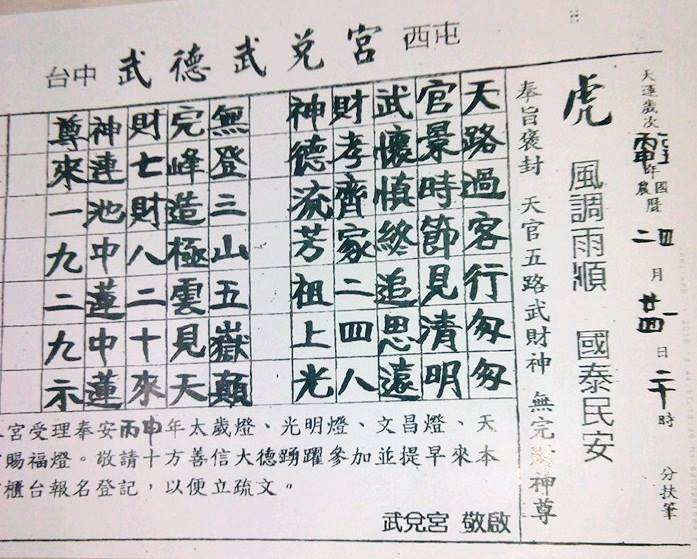 台中 武德武兌宮 西屯
天運歲次 年 國曆 農曆 二四月 日 二十時 分扶筆
虎 風調雨順 國泰民安
奉旨褒封 天官五路武財神 無完財神尊
天路過客行匆匆
官景時節見清明
武懷慎終追思遠
財孝齊家二四八
神德流芳祖上光
無登三山五嶽顛
完峰造極雲見天
財七財八二十來
神連池中蓮中蓮
尊來一九二九示
宮受理奉安丙申年太歲燈、光明燈、文昌燈、天
賜福燈。敬請十方善信大德踴躍參加並提早來本
櫃台報名登記，以便立疏文。
武兌宮 敬啟